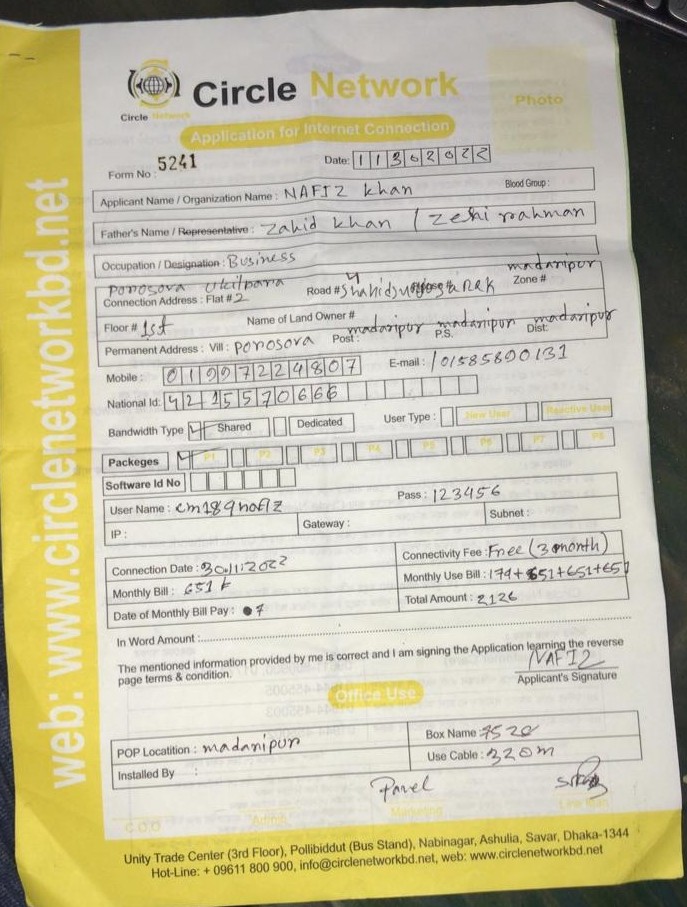 Circle Network
Circle Network
Photo
Application for Internet Connection
Form No : 5241
Date: 11302022
Applicant Name / Organization Name : NAFIZ khan
Blood Group :
Father's Name / Representative : Zahid khan /
Occupation / Designation : Business
Porosova Ukilpara
madaripur
Connection Address : Flat # 2
Road # 4
Zone #
Floor # 1st
Name of Land Owner #
Permanent Address : Vill : Porosova Post : madaripur P.S. madaripur Dist: madaripur
Mobile : 01997224807
E-mail : 01585890131
National Id: 4215570666
Bandwidth Type Shared Dedicated User Type : New User Reactive User
Packeges P1 P2 P3 P4 P5 P6 P7 P8
Software Id No
User Name : cm189nafiz
Pass : 123456
IP : Gateway : Subnet :
Connection Date : 30.11.2022
Connectivity Fee : Free (3 month)
Monthly Bill : 651
Monthly Use Bill : 174+651+651+651
Date of Monthly Bill Pay : 7
Total Amount : 2126
In Word Amount :
The mentioned information provided by me is correct and I am signing the Application learning the reverse
page terms & condition.
NAFIZ
Applicant's Signature
Office Use
POP Locatition : madaripur
Box Name : 7520
Installed By :
Use Cable : 320m
Pavel
C.O.O Admin Marketing Line Man
Unity Trade Center (3rd Floor), Pollibiddut (Bus Stand), Nabinagar, Ashulia, Savar, Dhaka-1344
Hot-Line: + 09611 800 900, info@circlenetworkbd.net, web: www.circlenetworkbd.net
web: www.circlenetworkbd.net